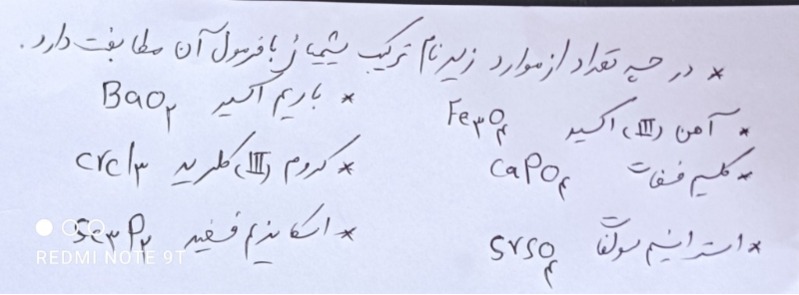 * در چه تعداد از موارد زیر نام ترکیب شیمیایی با فرمول آن مطابقت دارد.
* آهن (III) اکسید Fe۳O۴ * باریم اکسید BaO۲
* کلسیم فسفات CaPO۴ * کروم (III) کلرید CrCl۳
* استرانسیم سولفات SrSO۴ * اسکاندیم فسفید Sc۳P۲
REDMI NOTE 9T